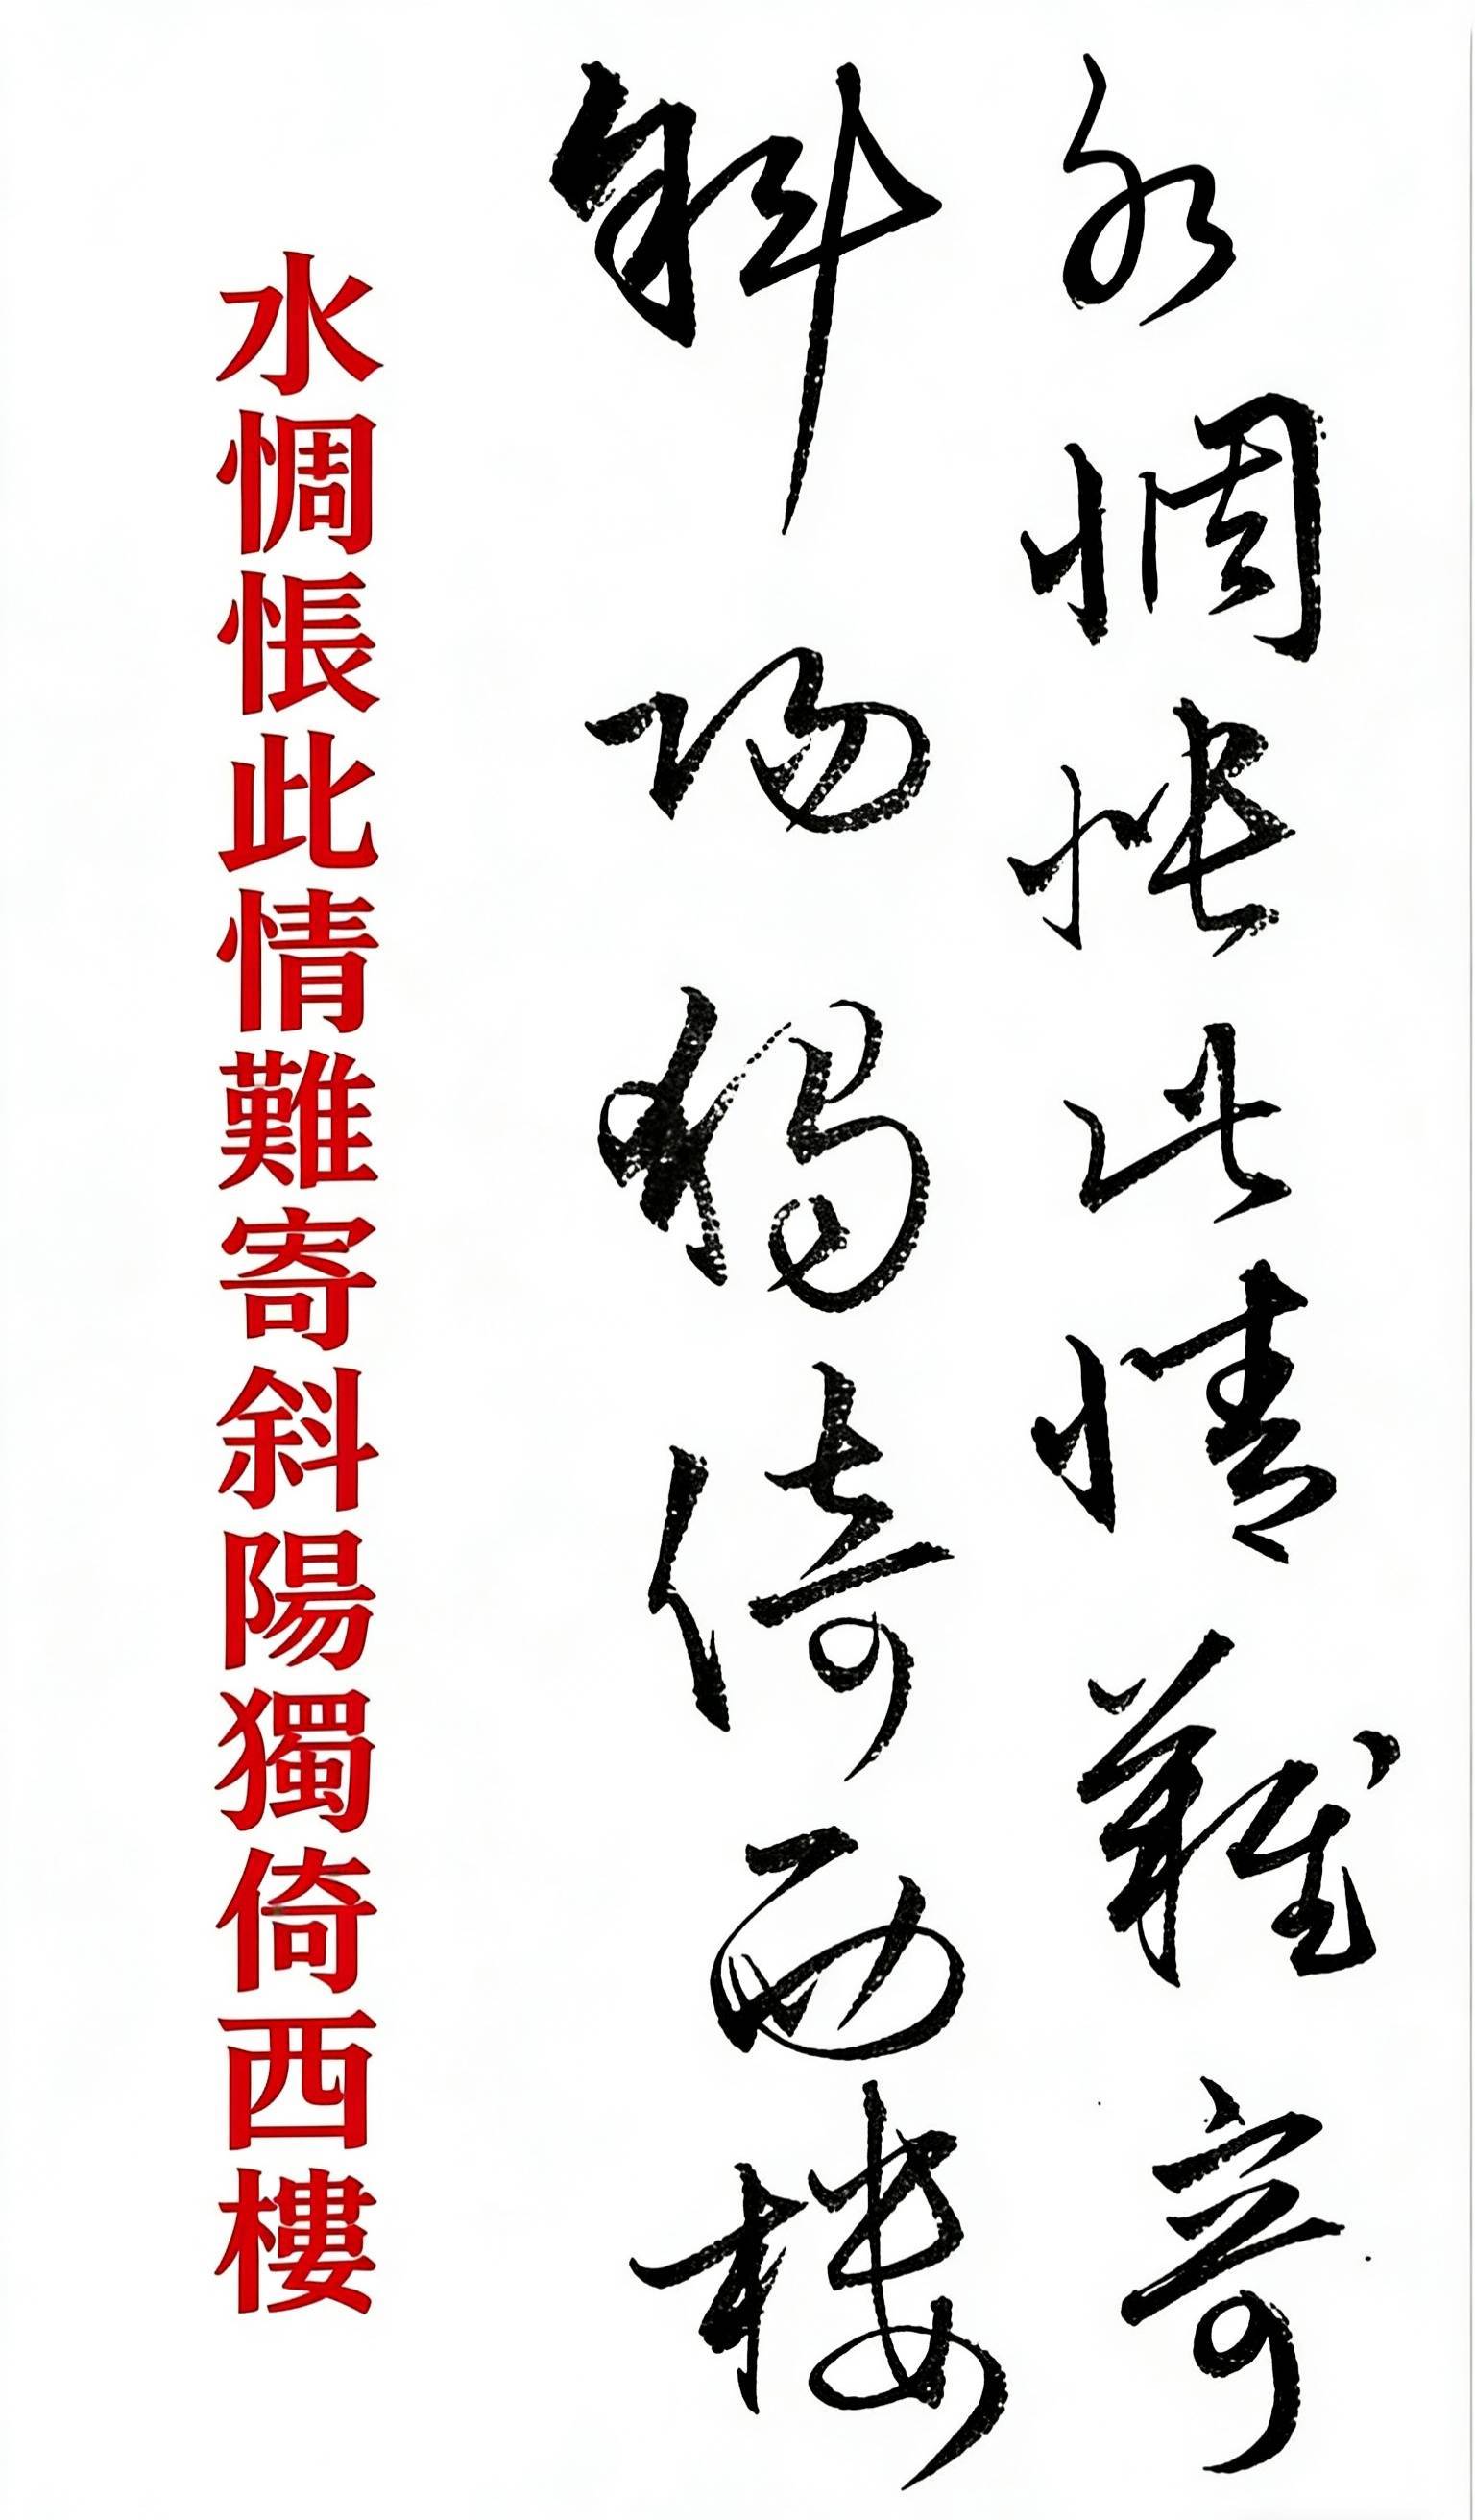 水惆悵此情難寄
斜陽獨倚西樓
水惆悵此情難寄斜陽獨倚西樓